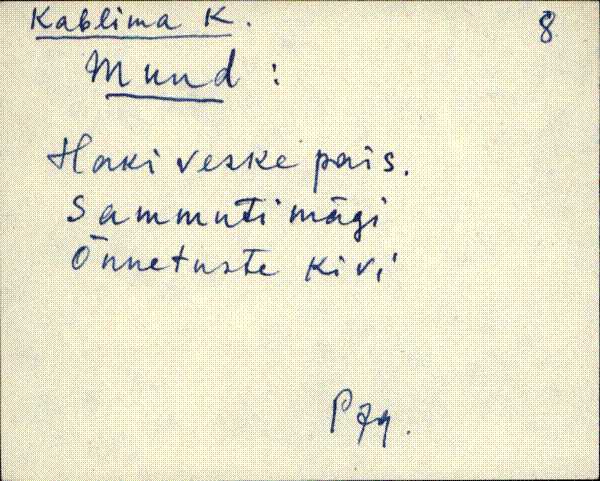 Kablima K.
8
Mund :
Haki veske pais.
Sammuti mägi
Õnnetuste kivi